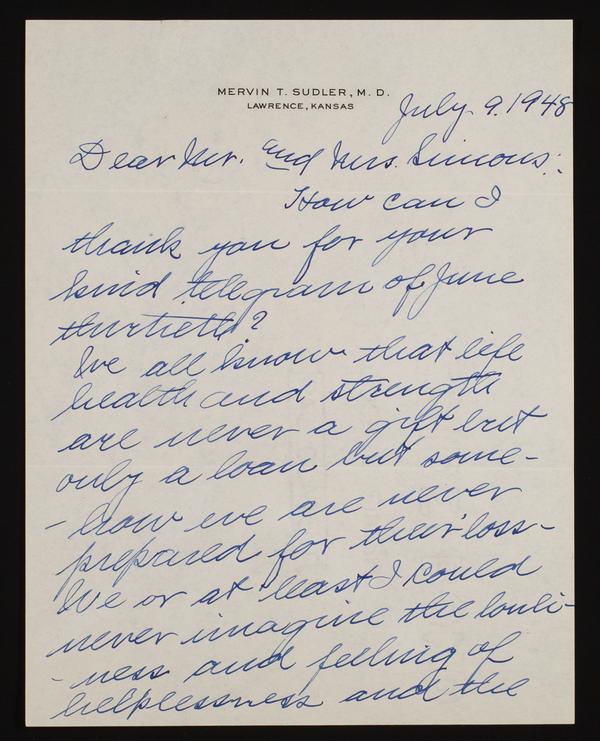 MERVIN T. SUDLER, M. D.
LAWRENCE, KANSAS
July 9. 1948
Dear Mr. and Mrs. Simons:
How can I
thank you for your
kind telegram of June
thirtieth?
We all know that life
health and strength
are never a gift but
only a loan but some-
-how we are never
prepared for their loss-
We or at least I could
never imagine the lonli-
-ness and feeling of
helplessness and the